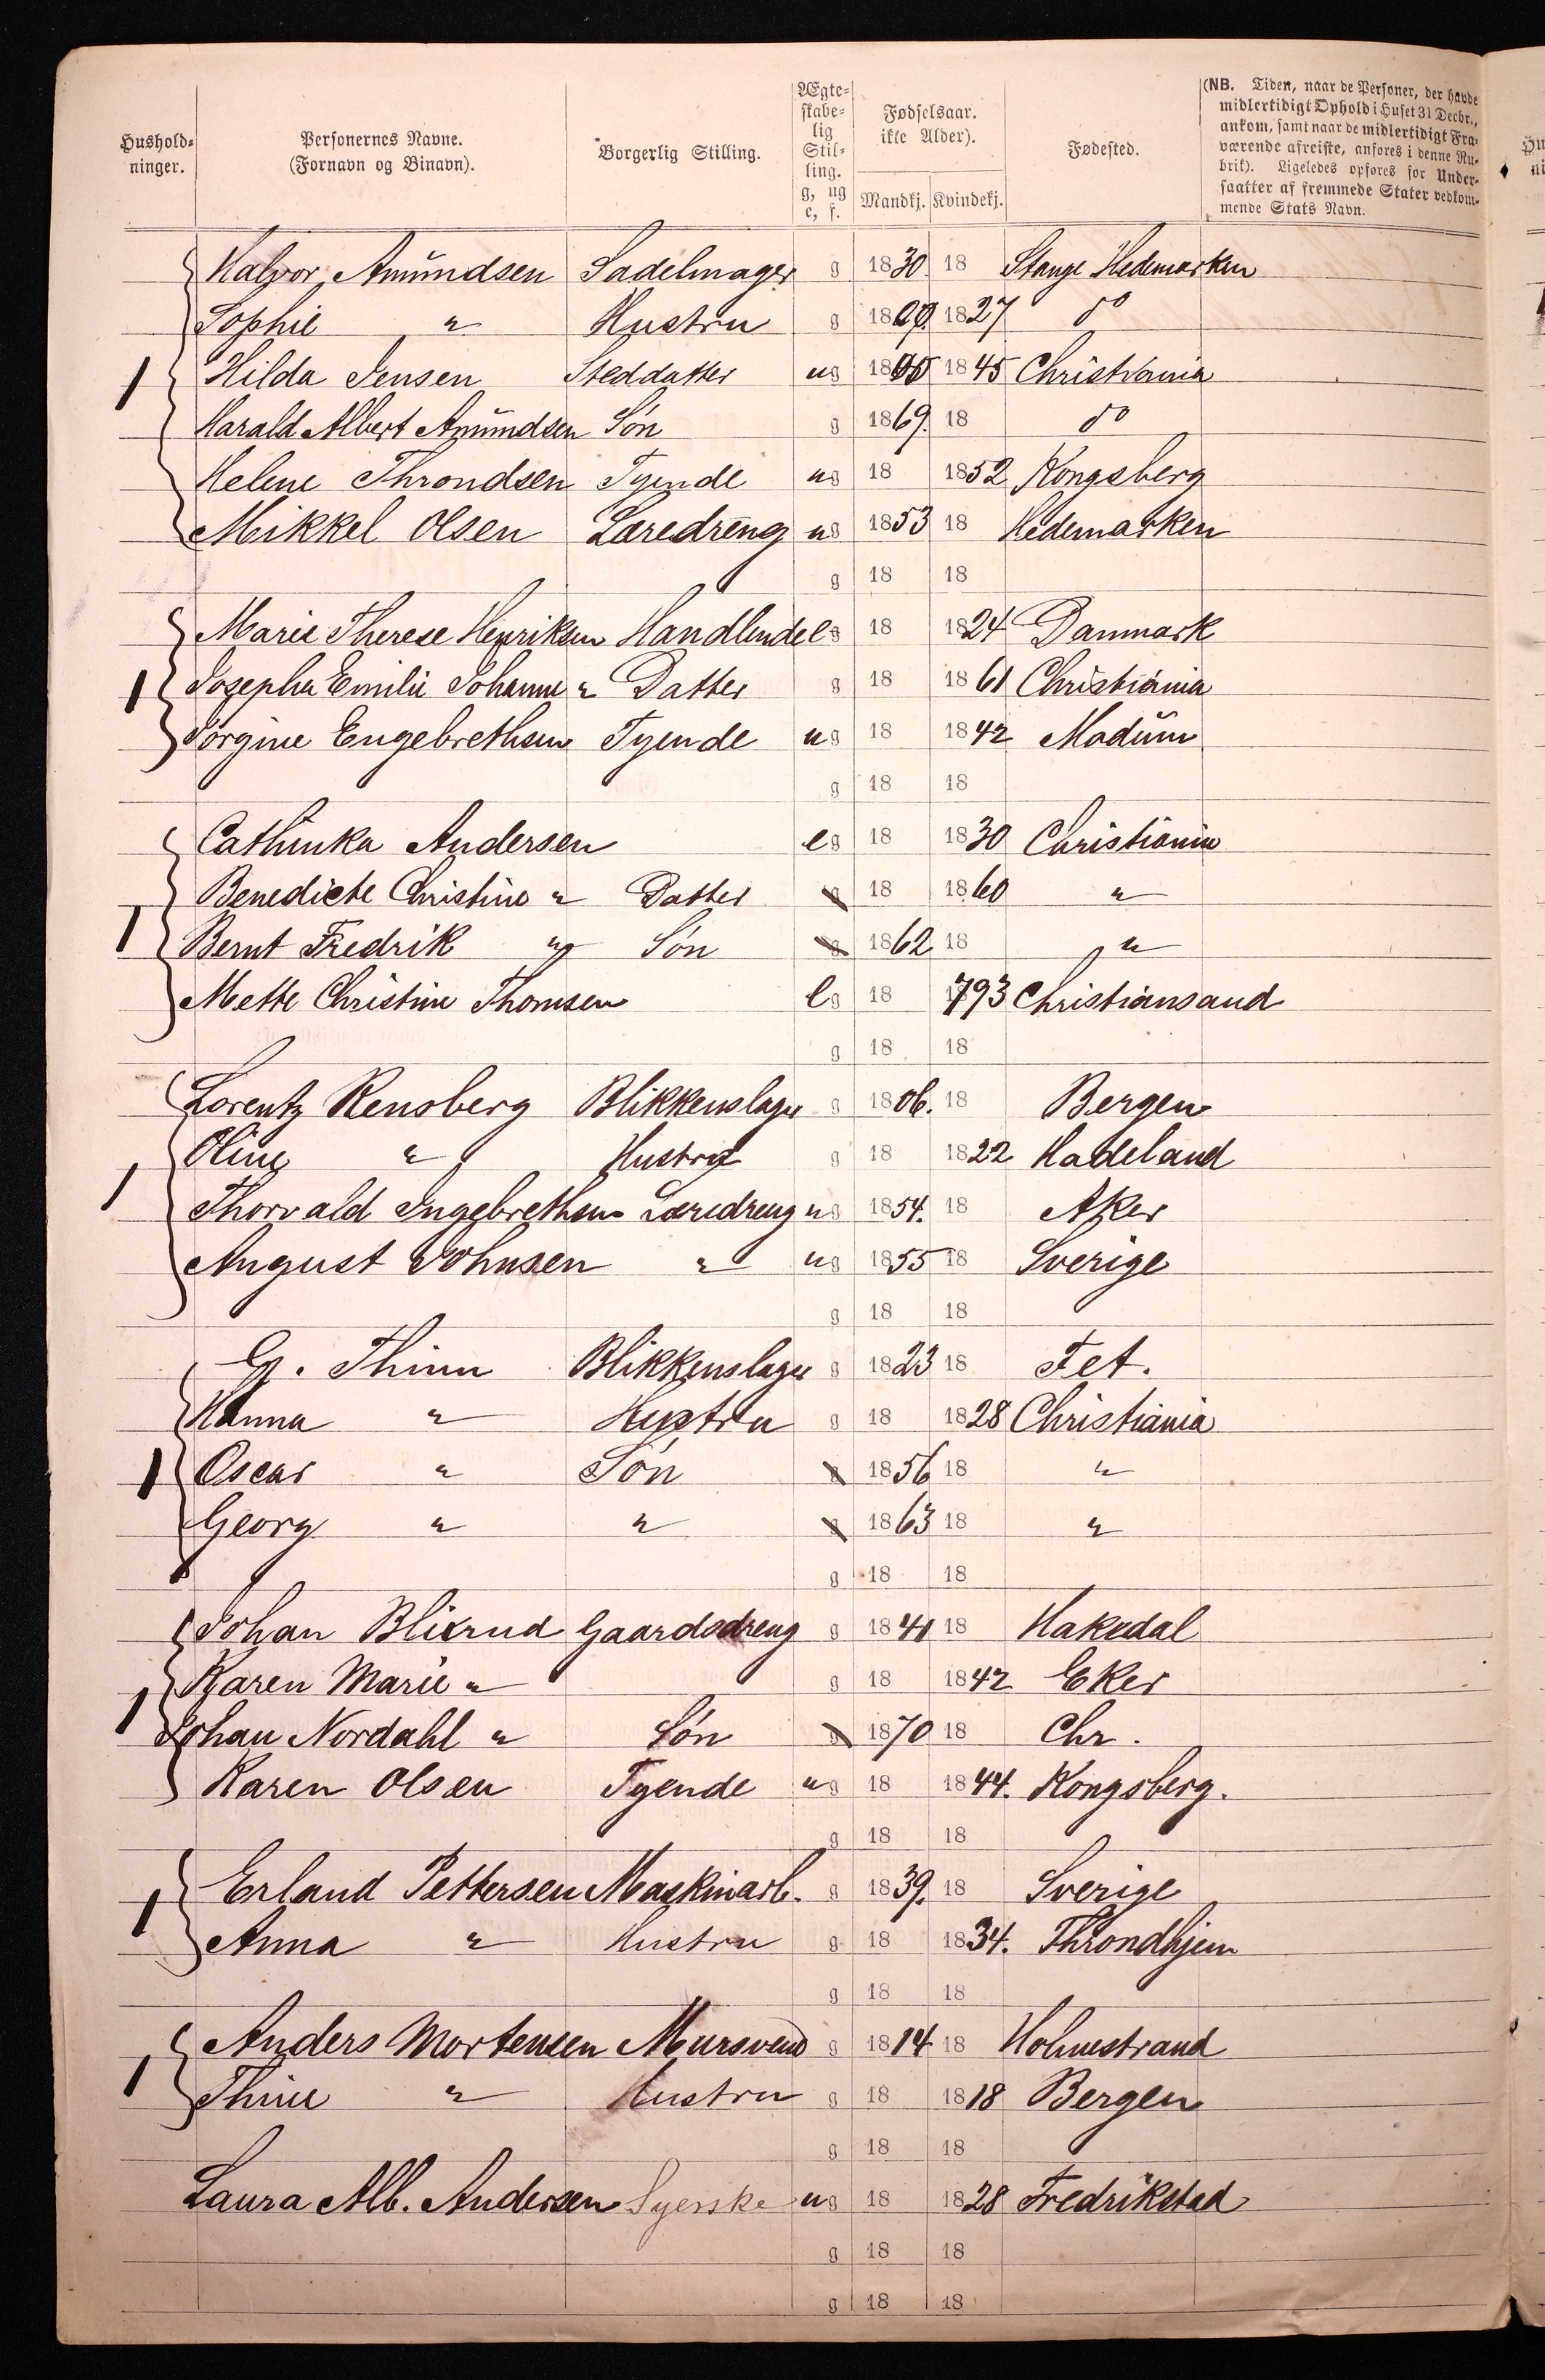 Hushold-
ninger.
Personernes Navne.
(Fornavn og Binavn).
Borgerlig Stilling.
Ægte-
skabe-
lig
Stil-
ling.
g, ug
e, f.
Fødselsaar.
ikke Alder).
Mandkj. Kvindekj.
Fødested.
(NB. Tiden, naar de Personer, der havde
midlertidigt Ophold i Huset 31 Decbr.,
ankom, samt naar de midlertidigt Fra-
værende afreiste, anføres i denne Ru-
brik). Ligeledes opføres for Under-
saatter af fremmede Stater vedkom-
mende Stats Navn.
Halvor Amundsen Sadelmager g 1830. 18 Stange Hedemarken
Sophie " Hustru g 18 1827 do
1 Hilda Jensen Steddatter ug 18 1845 Christiania
Harald Albert Amundsen Søn g 1869. 18 do
Helene Throndsen Tyende ug 18 1852 Kongsberg
Mikkel Olsen Læredreng ug 1853 18 Hedemarken
g 18 18
Marie Therese Henriksen Handlende eg 18 1824 Danmark
1 Josepha Emilie Johanne " Datter g 18 1861 Christiania
Jørgine Engebrethsen Tyende ug 18 1842 Modum
g 18 18
Cathinka Andersen eg 18 1830 Christiania
Benedicte Christine " Datter g 18 1860 "
1 Bernt Fredrik " Søn g 1862 18 "
Mette Christine Thomsen eg 18 1793 Christiansand
g 18 18
Lorentz Rensberg Blikkenslager g 1806. 18 Bergen
Oline " Hustru g 18 1822 Hadeland
1 Thorvald Ingebrethsen Læredreng ug 1854. 18 Aker
August Johnsen " ug 1855 18 Sverige
g 18 18
G. Thinn Blikkenslager g 1823 18 Fet.
Hanna " Hustru g 18 1828 Christiania
1 Oscar " Søn g 1856 18 "
Georg " " g 1863 18 "
g 18 18
Johan Blixrud Gaardsdreng g 1841 18 Hakedal
Karen Marie " g 18 1842 Eker
1 Johan Nordahl " Søn g 1870 18 Chr.
Karen Olsen Tyende ug 18 1844. Kongsberg.
g 18 18
1 Erland Pettersen Maskinarb. g 1839. 18 Sverige
Anna " Hustru g 18 1834. Throndhjem
g 18 18
Anders Mortensen Mursvend g 1814 18 Holmestrand
1 Thine " Hustru g 18 1818 Bergen
g 18 18
Laura Alb. Andersen Syerske ug 18 1828 Fredrikstad
g 18 18
g 18 18